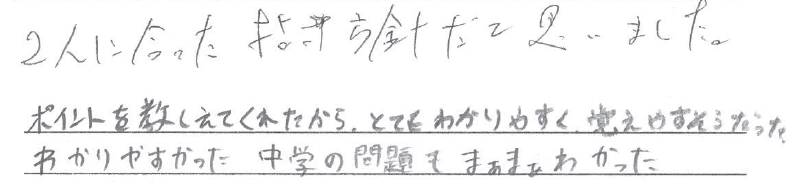 2人に合った指導方針だと思いました。
ポイントを教しえてくれたから、とてもわかりやすく、覚えやすそうだった
わかりやすかった 中学の問題もまぁまぁわかった